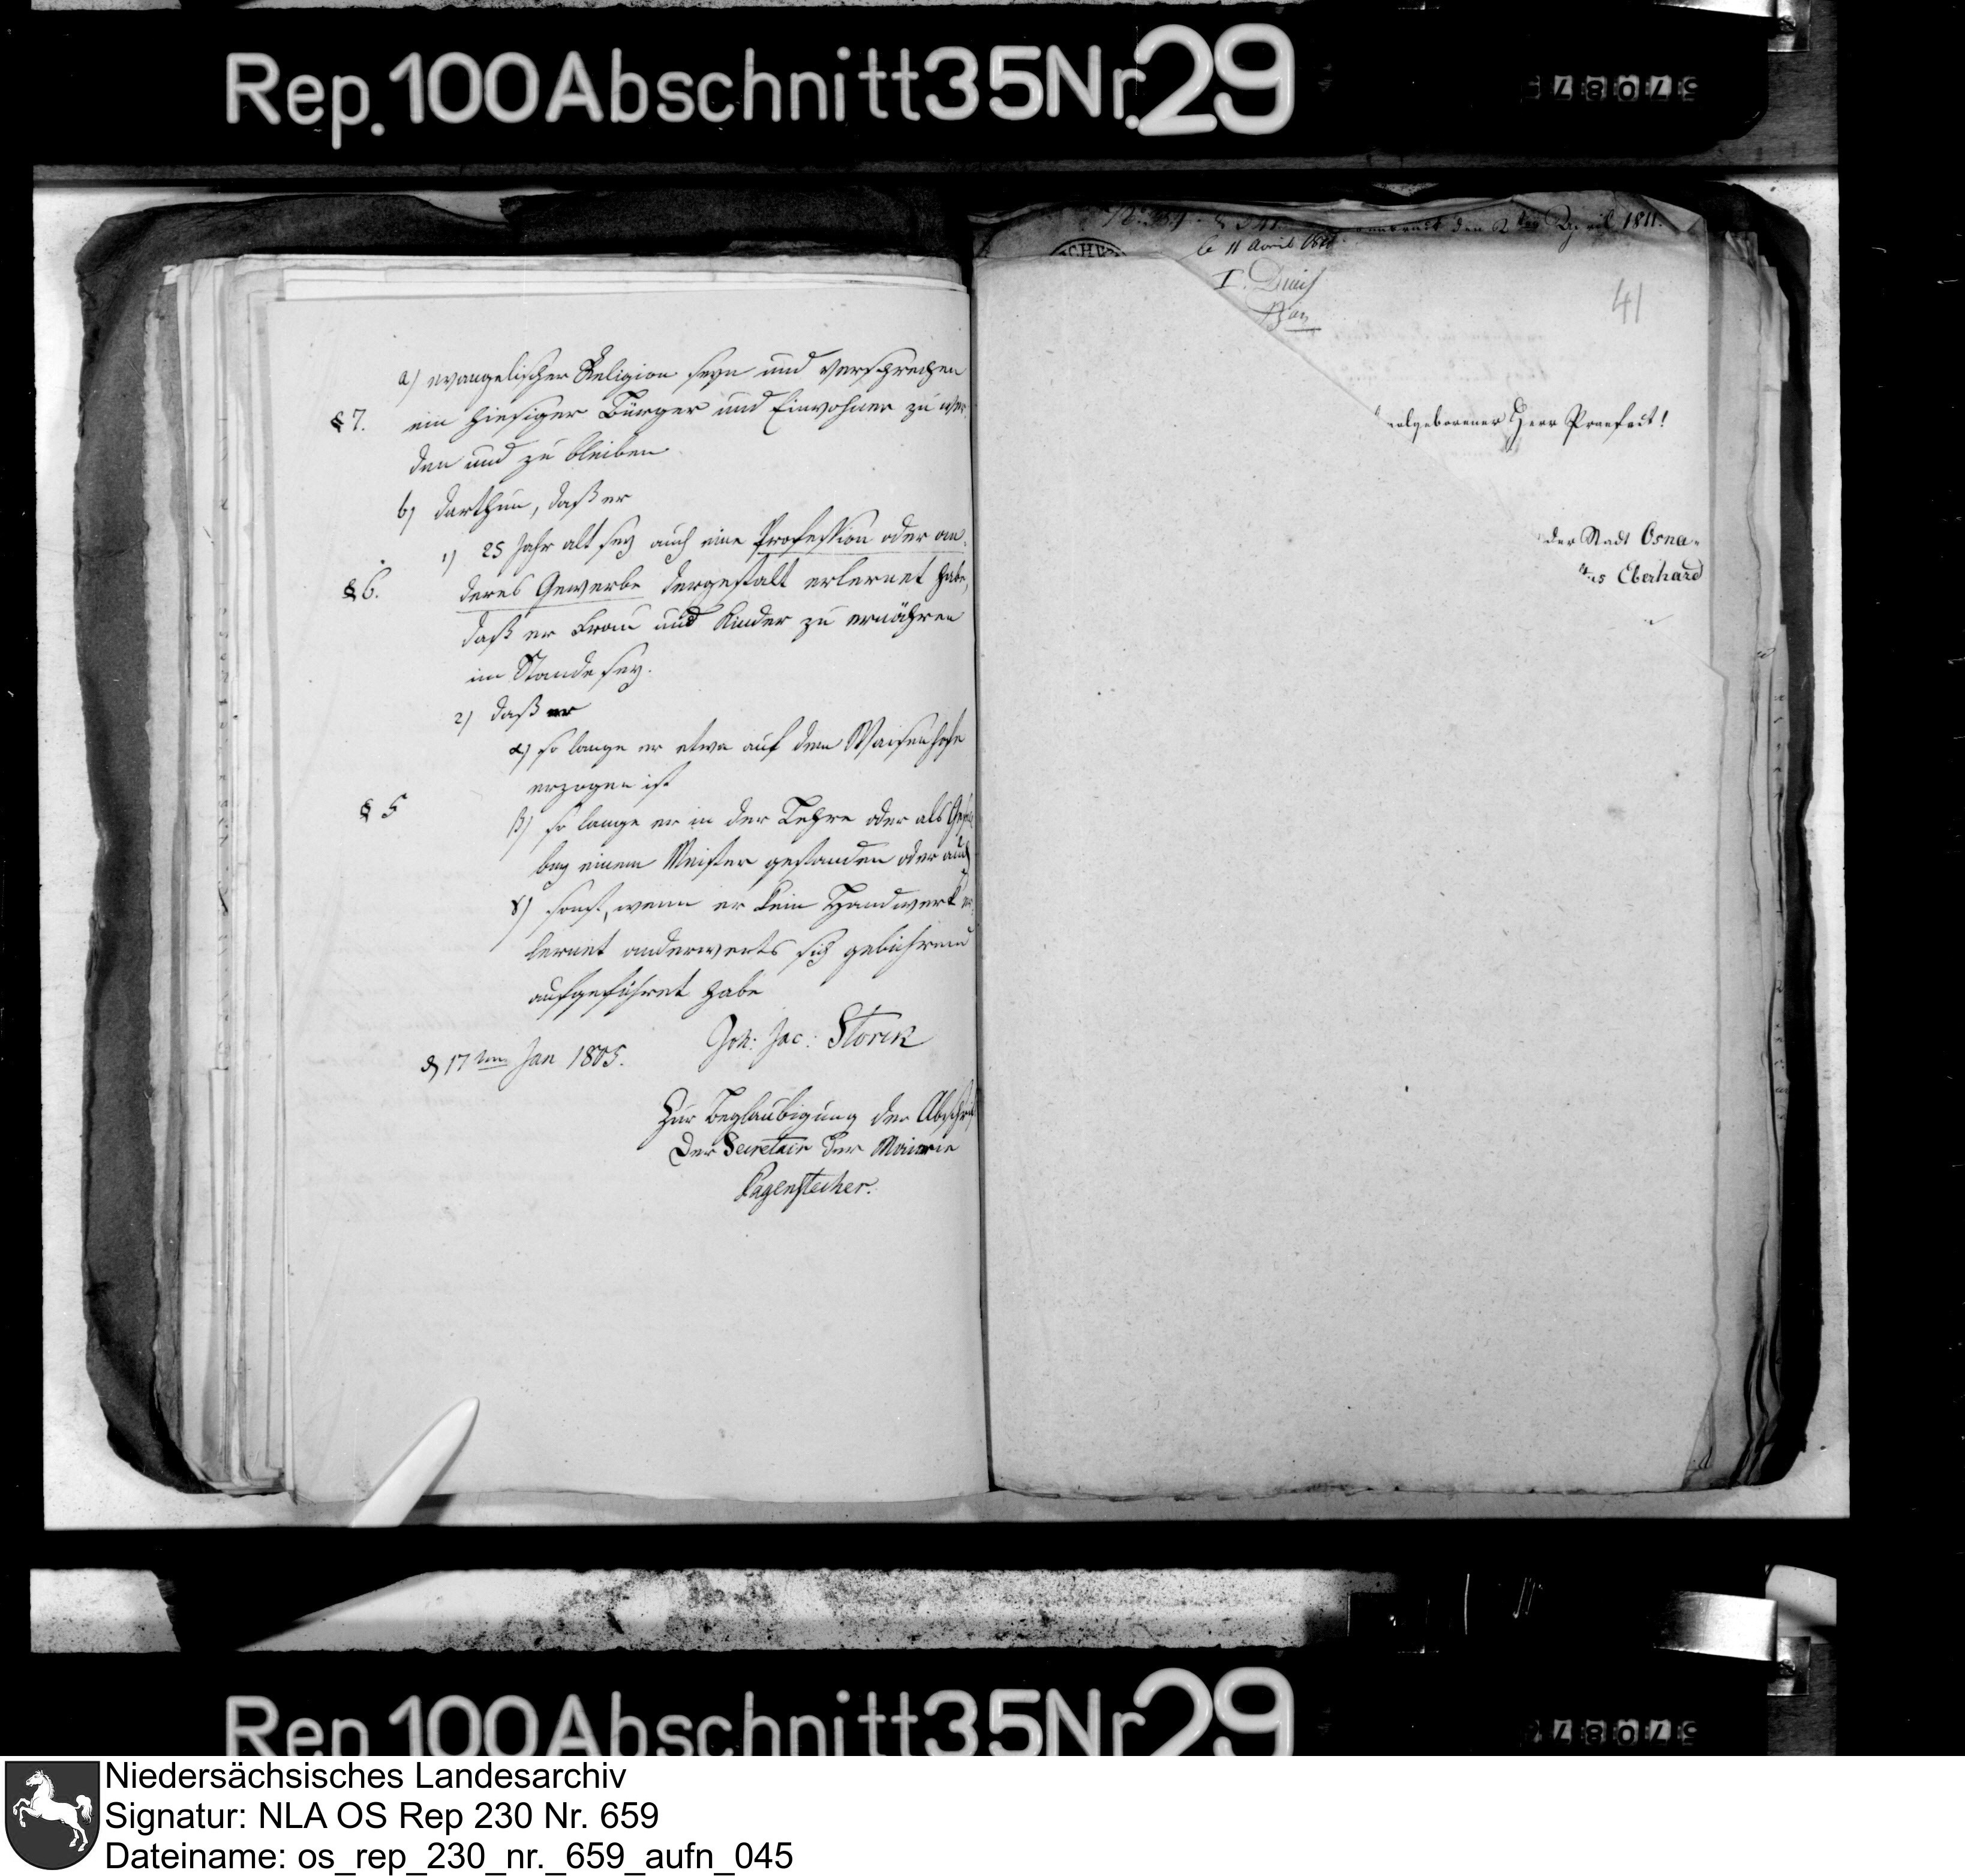 Rep. 100 Abschnitt 35 Nr. 29
57087
a) evangelischer Religion seyn und versprechen
§ 7. ein hiesiger Bürger und Einwohner zu wer-
den und zu bleiben
b) darthun, daß er
1) 25 Jahr alt sey auch eine Profession oder an-
§ 6. deres Gewerbe dergestalt erlernet habe,
daß er Frau und Kinder zu ernähren
im Stande sey.
2) daß er
α) so lange er etwa auf dem Waisenhofe
erzogen ist
§ 5
β) so lange er in der Lehre oder als
bey einem Meister gestanden oder auch
γ) sonst, wenn er kein Handwerk er-
lernet anderwerts sich gebührend
aufgeführet habe
Joh: Jac: Storck
d 17ten Jan 1805.
Zur Beglaubigung der Abschrift
Der Secretair der Mairie
Pagenstecher.
den 2ten April 1811.
le 11 Avril
I. Divis
41
Herr Praefect!
der Stadt Osna-
Eberhard
Rep. 100 Abschnitt 35 Nr. 29
57087
Niedersächsisches Landesarchiv
Signatur: NLA OS Rep 230 Nr. 659
Dateiname: os_rep_230_nr._659_aufn_045